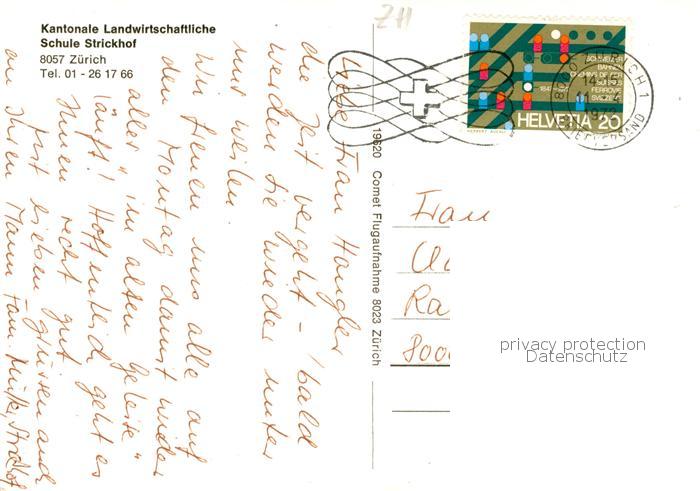 Kantonale Landwirtschaftliche
Schule Strickhof
8057 Zürich
Tel. 01 - 26 17 66
Liebe Frau Hangler
die Zeit vergeht - bald
werden Sie wieder unter
uns weilen
Wir freuen uns alle auf
den Montag damit wieder
alles "im alten Geleise"
läuft! Hoffentlich geht es
Ihnen recht gut
Mit lieben Grüssen auch
an Ihren Mann Fam. Strickhof
19620 Comet Flugaufnahme 8023 Zürich
ZH
SCHWEIZER
BAHNEN
CHEMINS DE FER
SUISSES
FERROVIE
SVIZZERE
1847-1972
HELVETIA 20
Frau
Ra
800
privacy protection
Datenschutz